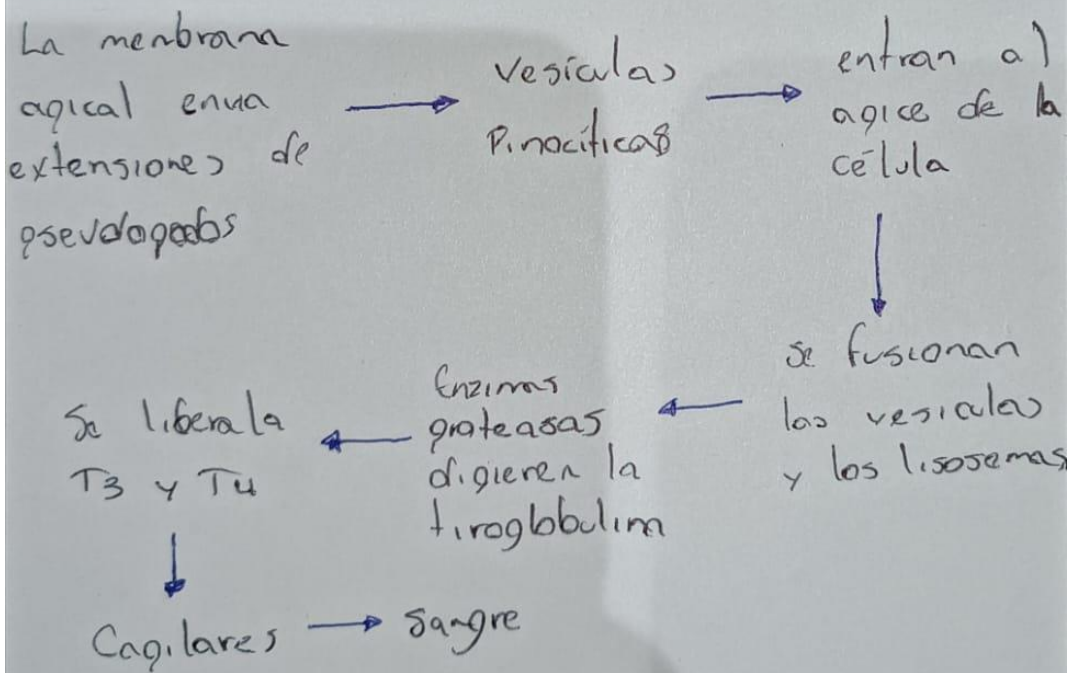 La menbrana
apical envia
extensiones de
pseudopodos
vesiculas
Pinociticas
entran al
apice de la
célula
se fusionan
las vesiculas
y los lisosomas
Enzimas
proteasas
digieren la
tiroglobulina
Se libera la
T3 y T4
Capilares
Sangre